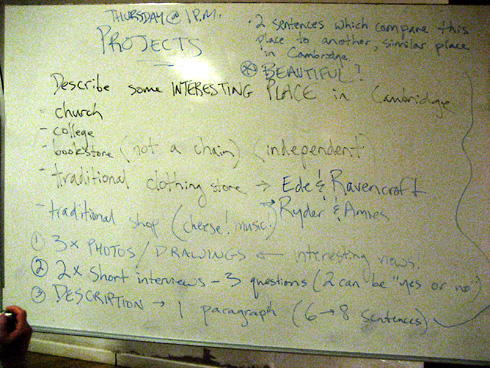 THURSDAY @ 1 P.M.
PROJECTS
· 2 sentences which compare this
place to another, similar place
in Cambridge
* BEAUTIFUL?
Describe some INTERESTING PLACE in Cambridge
- church
- college
- bookstore (not a chain) (independent)
- traditional clothing store → Ede & Ravencroft
→ Ryder & Amies
- traditional shop (cheese! music!)
① 3x PHOTOS / DRAWINGS ← interesting views.
② 2x short interviews - 3 questions (2 can be "yes or no")
③ DESCRIPTION → 1 paragraph (6 → 8 sentences)